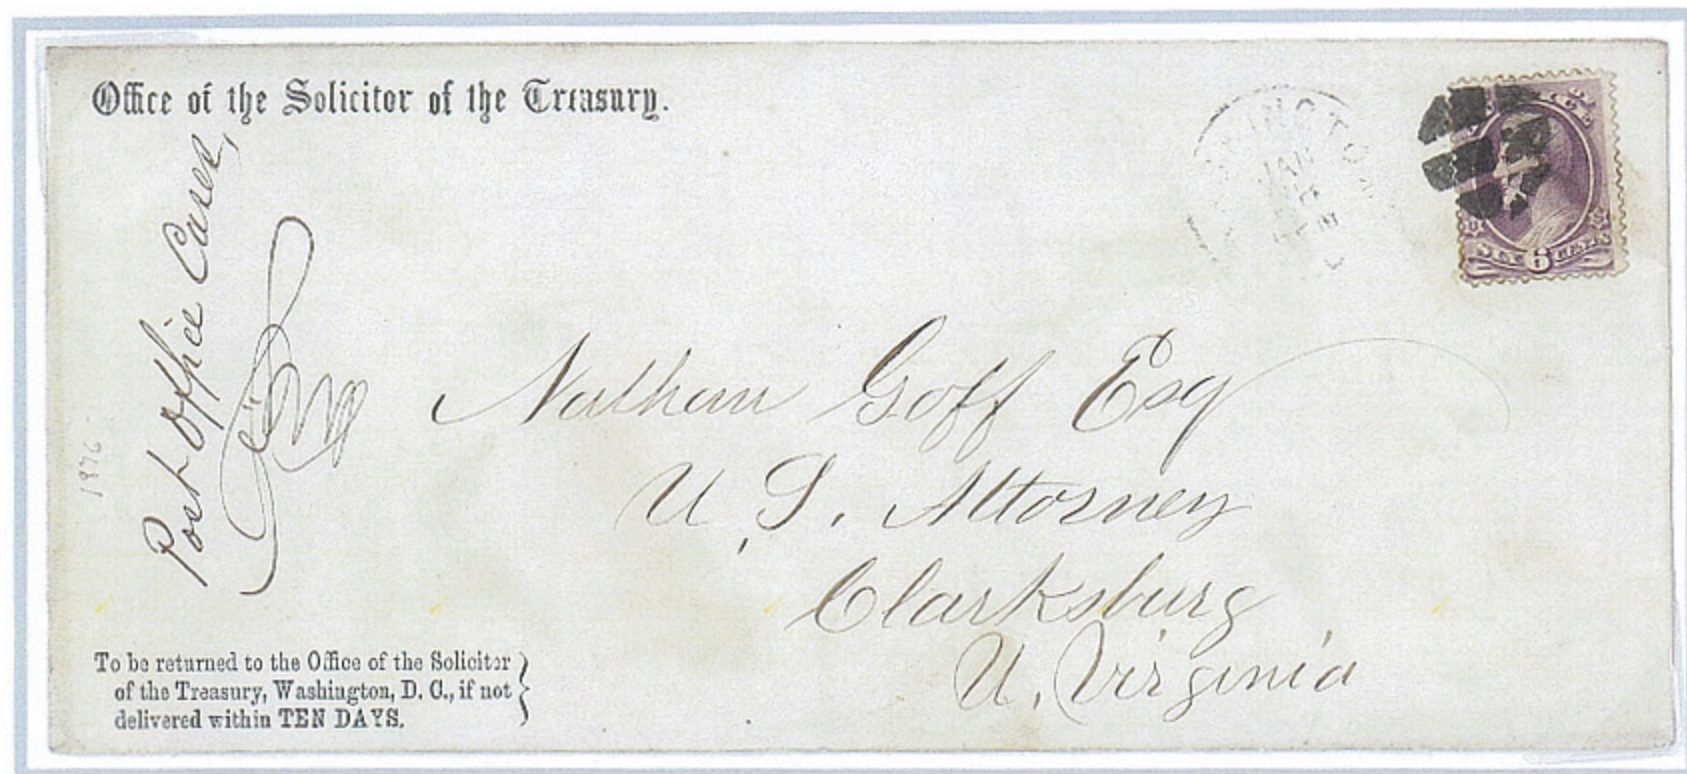 Office of the Solicitor of the Treasury.
Post Office Cases,
1876
JAN
6 CENTS
Nathan Goff Esq
U. S. Attorney
Clarksburg
W. Virginia
To be returned to the Office of the Solicitor
of the Treasury, Washington, D. C., if not
delivered within TEN DAYS.